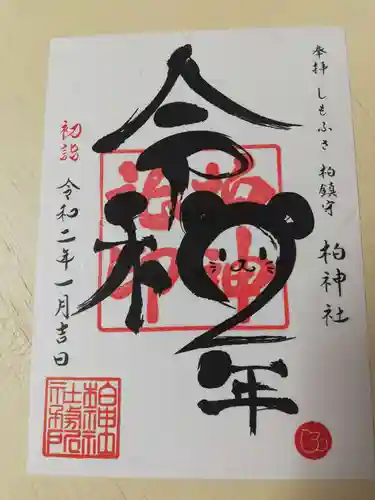 奉拝 しもふさ 柏鎮守 柏神社
令和2年
初詣
令和二年一月吉日
柏神社印
柏神社社務所印